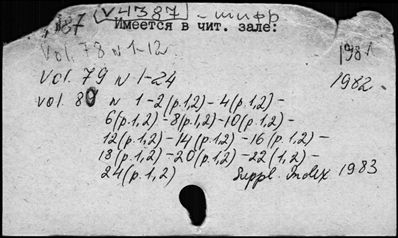 V4387 - шифр
Имеется в чит. зале:
Vol. 78 N 1-12 1981
Vol. 79 N 1-24 1982 -
vol. 80 N 1-2(p.1,2)-4(p.1,2)-
6(p.1,2)-8(p.1,2)-10(p.1,2)-
12(p.1,2)-14(p.1,2)-16(p.1,2)-
18(p.1,2)-20(p.1,2)-22(1,2)-
24(p.1,2) Suppl. Index 1983